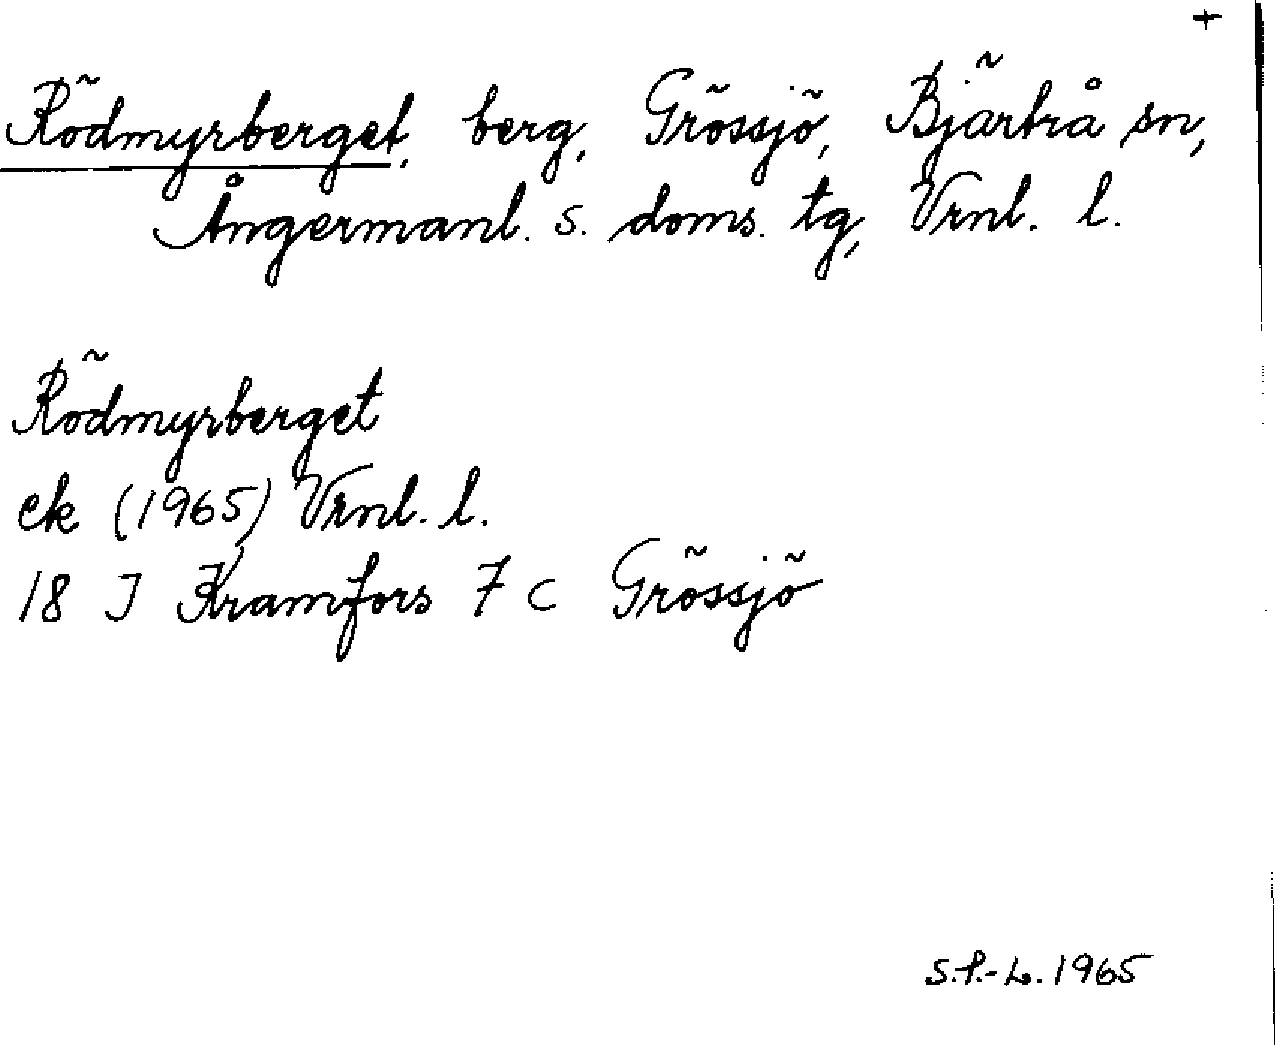 +
Rödmyrberget, berg, Grössjö, Bjärtrå sn,
Ångermanl. s. doms. tg, Vrnl. l.
Rödmyrberget
ek (1965) Vrnl. l.
18 J Kramfors 7 c Grössjö
S.P.-L. 1965